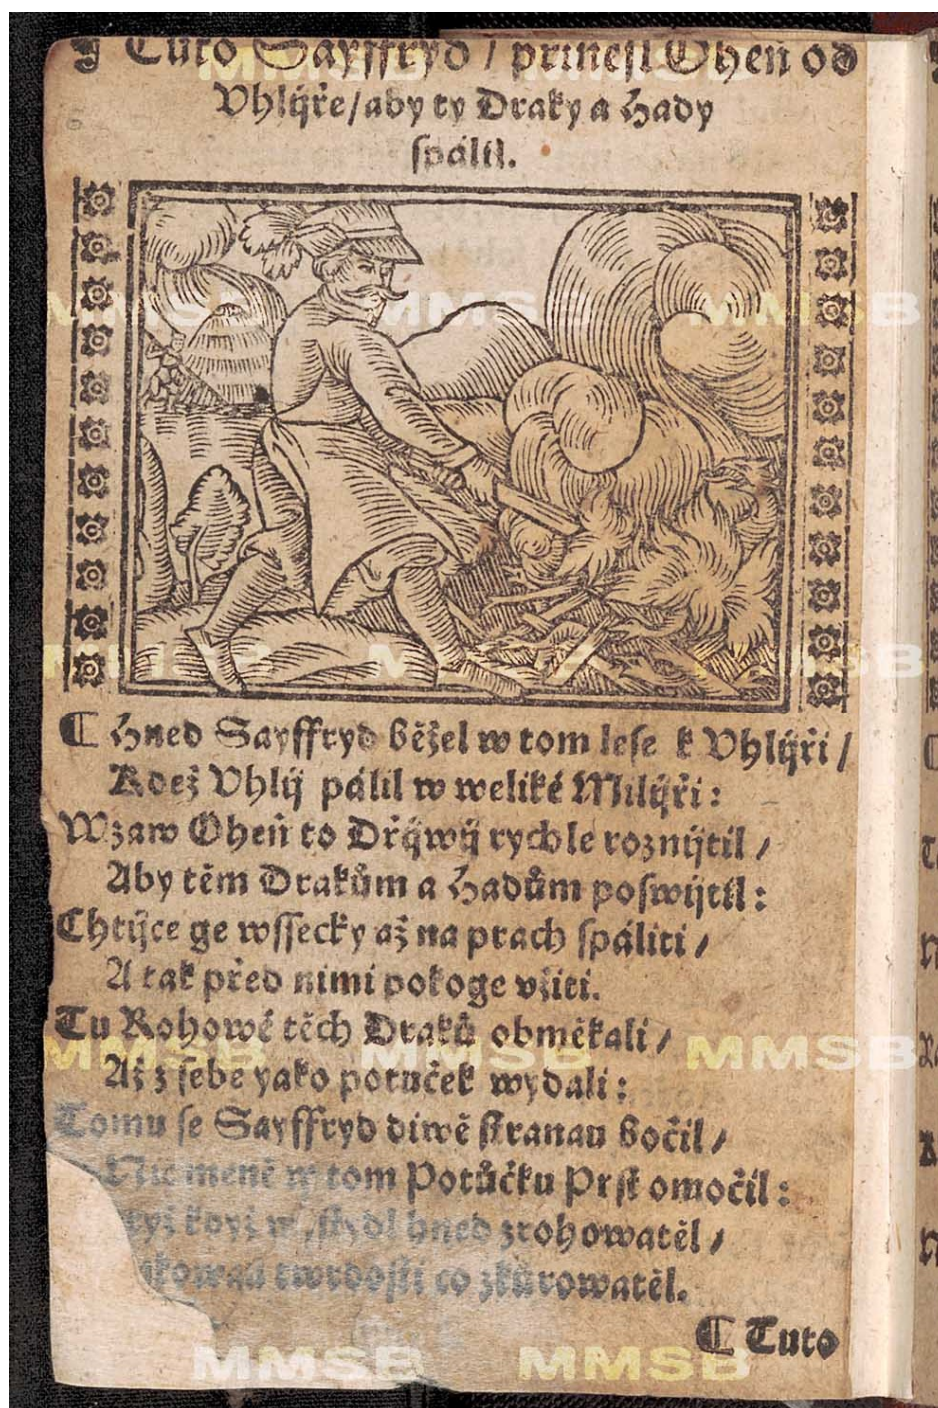 ¶ Tuto Sayffryd / prinesl Oheň od
Vhlijře / aby ty Draky a Hady
spálil.
¶ Hned Sayffryd běžel w tom lese k Vhlijři /
Kdež Vhlij pálil w weliké Milijři:
Wzaw Oheň to Dřijwij rychle roznijtil /
Aby těm Drakům a Hadům poswijtil:
Chtijce ge wssecky až na prach spáliti /
A tak před nimi pokoge vžiti.
Tu Rohowé těch Draků obměkali /
Až z sebe yako potuček wydali:
Tomu se Sayffryd diwě stranau bočil /
Nic méně w tom Potůčku Prst omočil:
když hned zrohowatěl /
twrdosti co zkůrowatěl.
¶ Tuto
MMSB